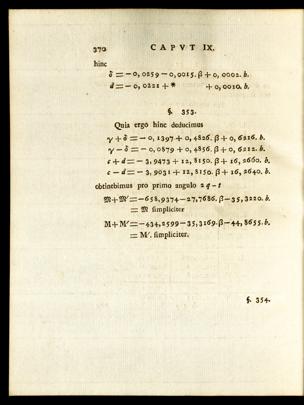 370 CAPVT IX.
hinc
δ = — 0, 0259 — 0, 0015. β + 0, 0002. b.
d = — 0, 0221 + * + 0, 0010. b.
§. 353.
Quia ergo hinc deducimus
γ + δ = — 0, 1397 + 0, 4826. β + 0, 6216. b.
γ — δ = — 0, 0879 + 0, 4856. β + 0, 6212. b.
c + d = — 3, 9473 + 12, 8150. β + 16, 2660. b.
c — d = — 3, 9031 + 12, 8150. β + 16, 2640. b.
obtinebimus pro primo angulo 2 q — t
𝔐 + 𝔐′ = — 658, 9374 — 27, 7686. β — 35, 3220. b.
= 𝔐 simpliciter
M + M′ = — 434, 2599 — 35, 3169. β — 44, 8655. b.
= M′. simpliciter.
§. 354.